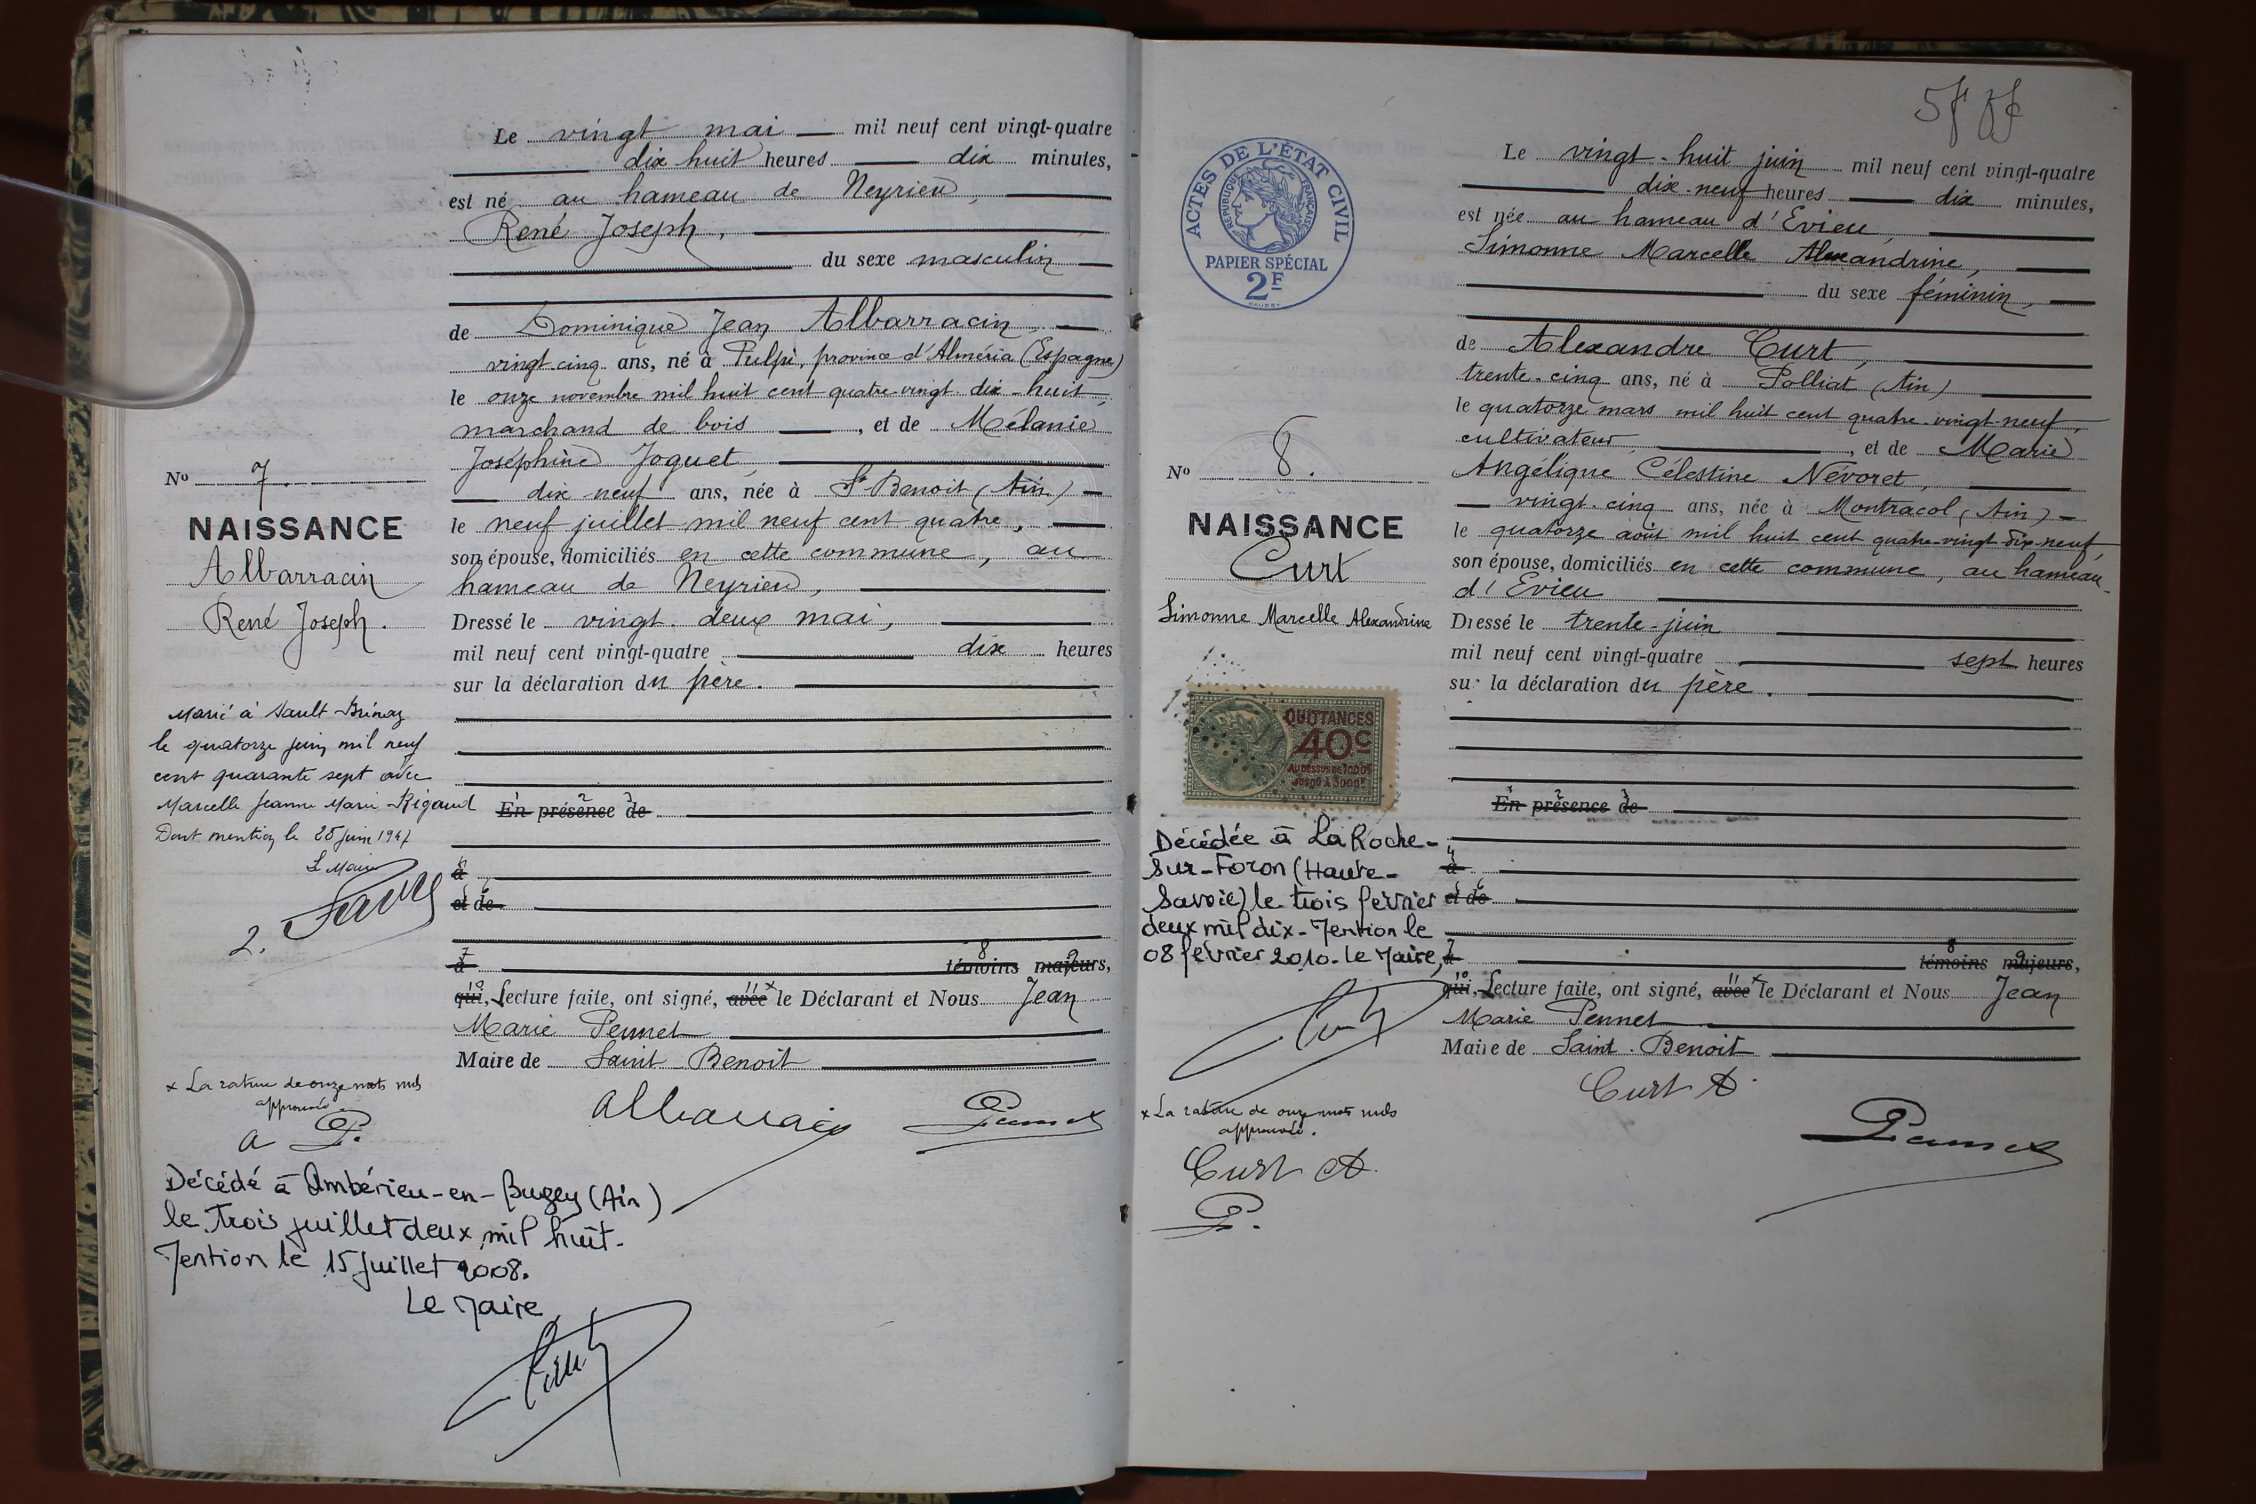 Le vingt mai mil neuf cent vingt-quatre
dix huit heures dix minutes,
est né au hameau de Neyrieu,
René Joseph,
du sexe masculin
de Dominique Jean Albarracin,
vingt-cinq ans, né à Pulpi, province d'Alméria (Espagne)
le onze novembre mil huit cent quatre-vingt-dix-huit,
marchand de bois, et de Mélanie
Joséphine Joguet,
dix neuf ans, née à St Benoit (Ain)
le neuf juillet mil neuf cent quatre,
son épouse, domiciliés en cette commune, au
hameau de Neyrieu,
Dressé le vingt-deux mai,
mil neuf cent vingt-quatre dix heures
sur la déclaration du père.
En présence de
1 2 3
à
4
et de
5 6
à témoins majeurs,
7 8 9
qui, Lecture faite, ont signé, avec x le Déclarant et Nous Jean
10 11
Marie Pennet
Maire de Saint Benoit
Albarracin
Pennet
No 7.
NAISSANCE
Albarracin
René Joseph.
Marié à Sault-Brénaz
le quatorze juin mil neuf
cent quarante sept avec
Marcelle Jeanne Marie Rigaud
Dont mention le 25 juin 1947
Le Maire
2.
x La rature de onze mots nuls
approuvée.
A P.
Décédé à Ambérieu-en-Bugey (Ain)
le trois juillet deux mil huit.
Mention le 15 Juillet 2008.
Le Maire
ACTES DE L'ÉTAT CIVIL
RÉPUBLIQUE FRANÇAISE
PAPIER SPÉCIAL
2F
Le vingt-huit juin mil neuf cent vingt-quatre
dix-neuf heures dix minutes,
est née au hameau d'Evieu,
Simonne Marcelle Alexandrine,
du sexe féminin,
de Alexandre Curt,
trente-cinq ans, né à Polliat (Ain)
le quatorze mars mil huit cent quatre-vingt-neuf,
cultivateur, et de Marie
Angélique Célestine Névoret,
vingt-cinq ans, née à Montracol (Ain)
le quatorze août mil huit cent quatre-vingt-dix-neuf,
son épouse, domiciliés en cette commune, au hameau
d'Evieu
Dressé le trente-juin
mil neuf cent vingt-quatre sept heures
sur la déclaration du père.
En présence de
1 2 3
à
4
et de
5 6
à témoins majeurs,
7 8 9
qui, Lecture faite, ont signé, avec x le Déclarant et Nous Jean
10 11
Marie Pennet
Maire de Saint-Benoit
Curt A.
Pennet
No 8.
NAISSANCE
Curt
Simonne Marcelle Alexandrine
QUITTANCES
40c
AU DESSUS DE 1000F
JUSQU'À 3000F
Décédée à La Roche-
Sur-Foron (Haute-
Savoie) le trois février
deux mil dix. Mention le
08 février 2010. Le Maire,
x La rature de onze mots nuls
approuvée.
Curt A.
P.